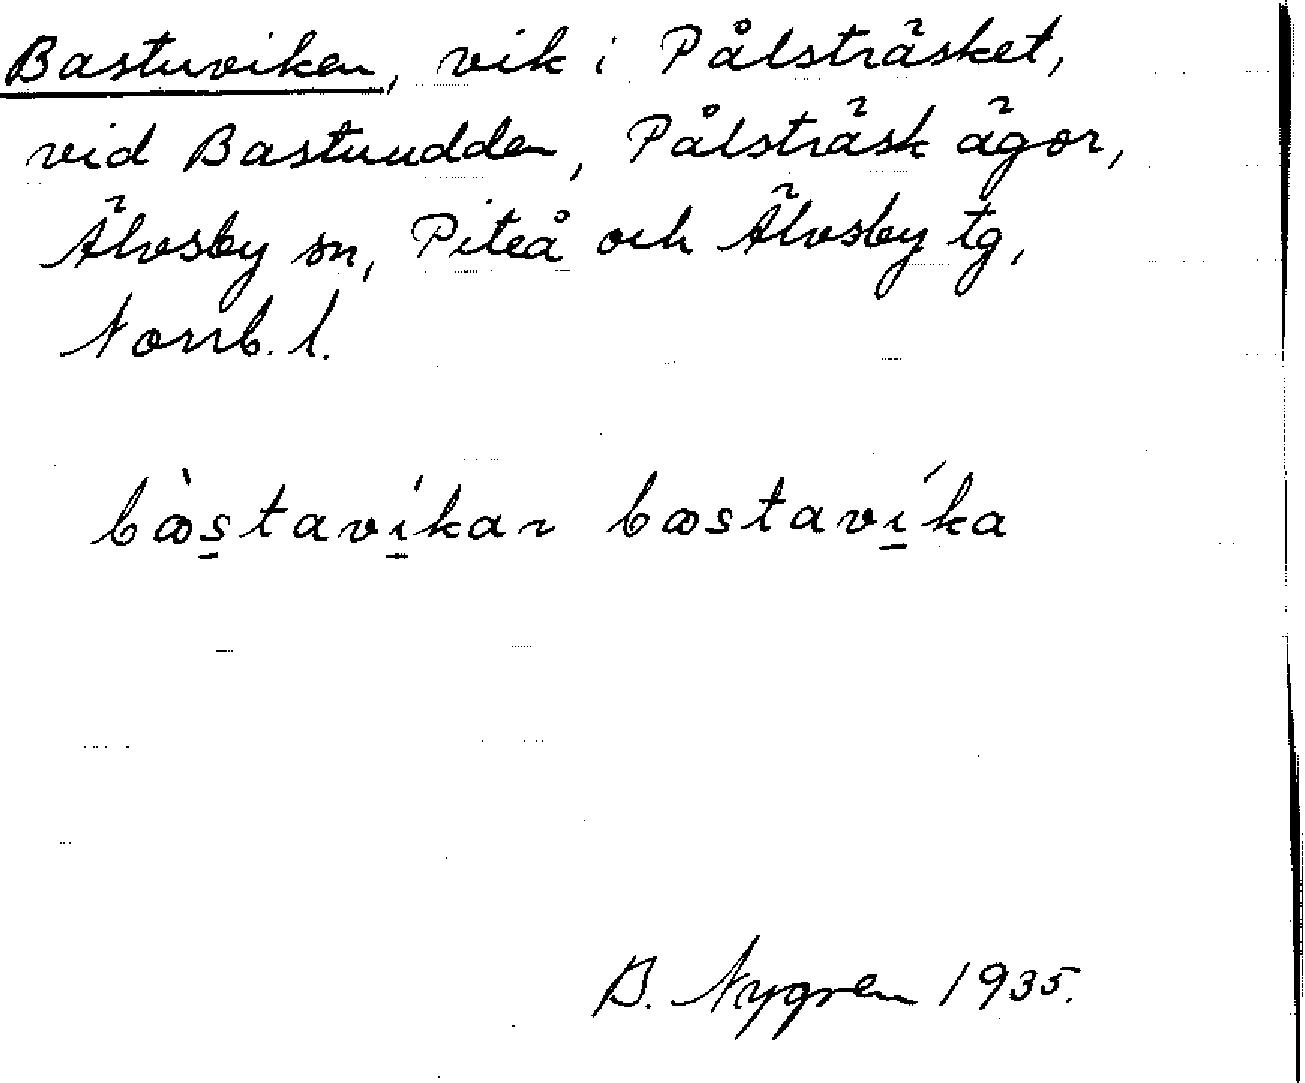 Bastuviken, vik i Pålsträsket,
vid Bastuudden, Pålsträsk ägor,
Älvsby sn, Piteå och Älvsby tg,
Norrb. l.
bæ̀s̱taví̱kan bæstaví̱ka
B. Nygren 1935.